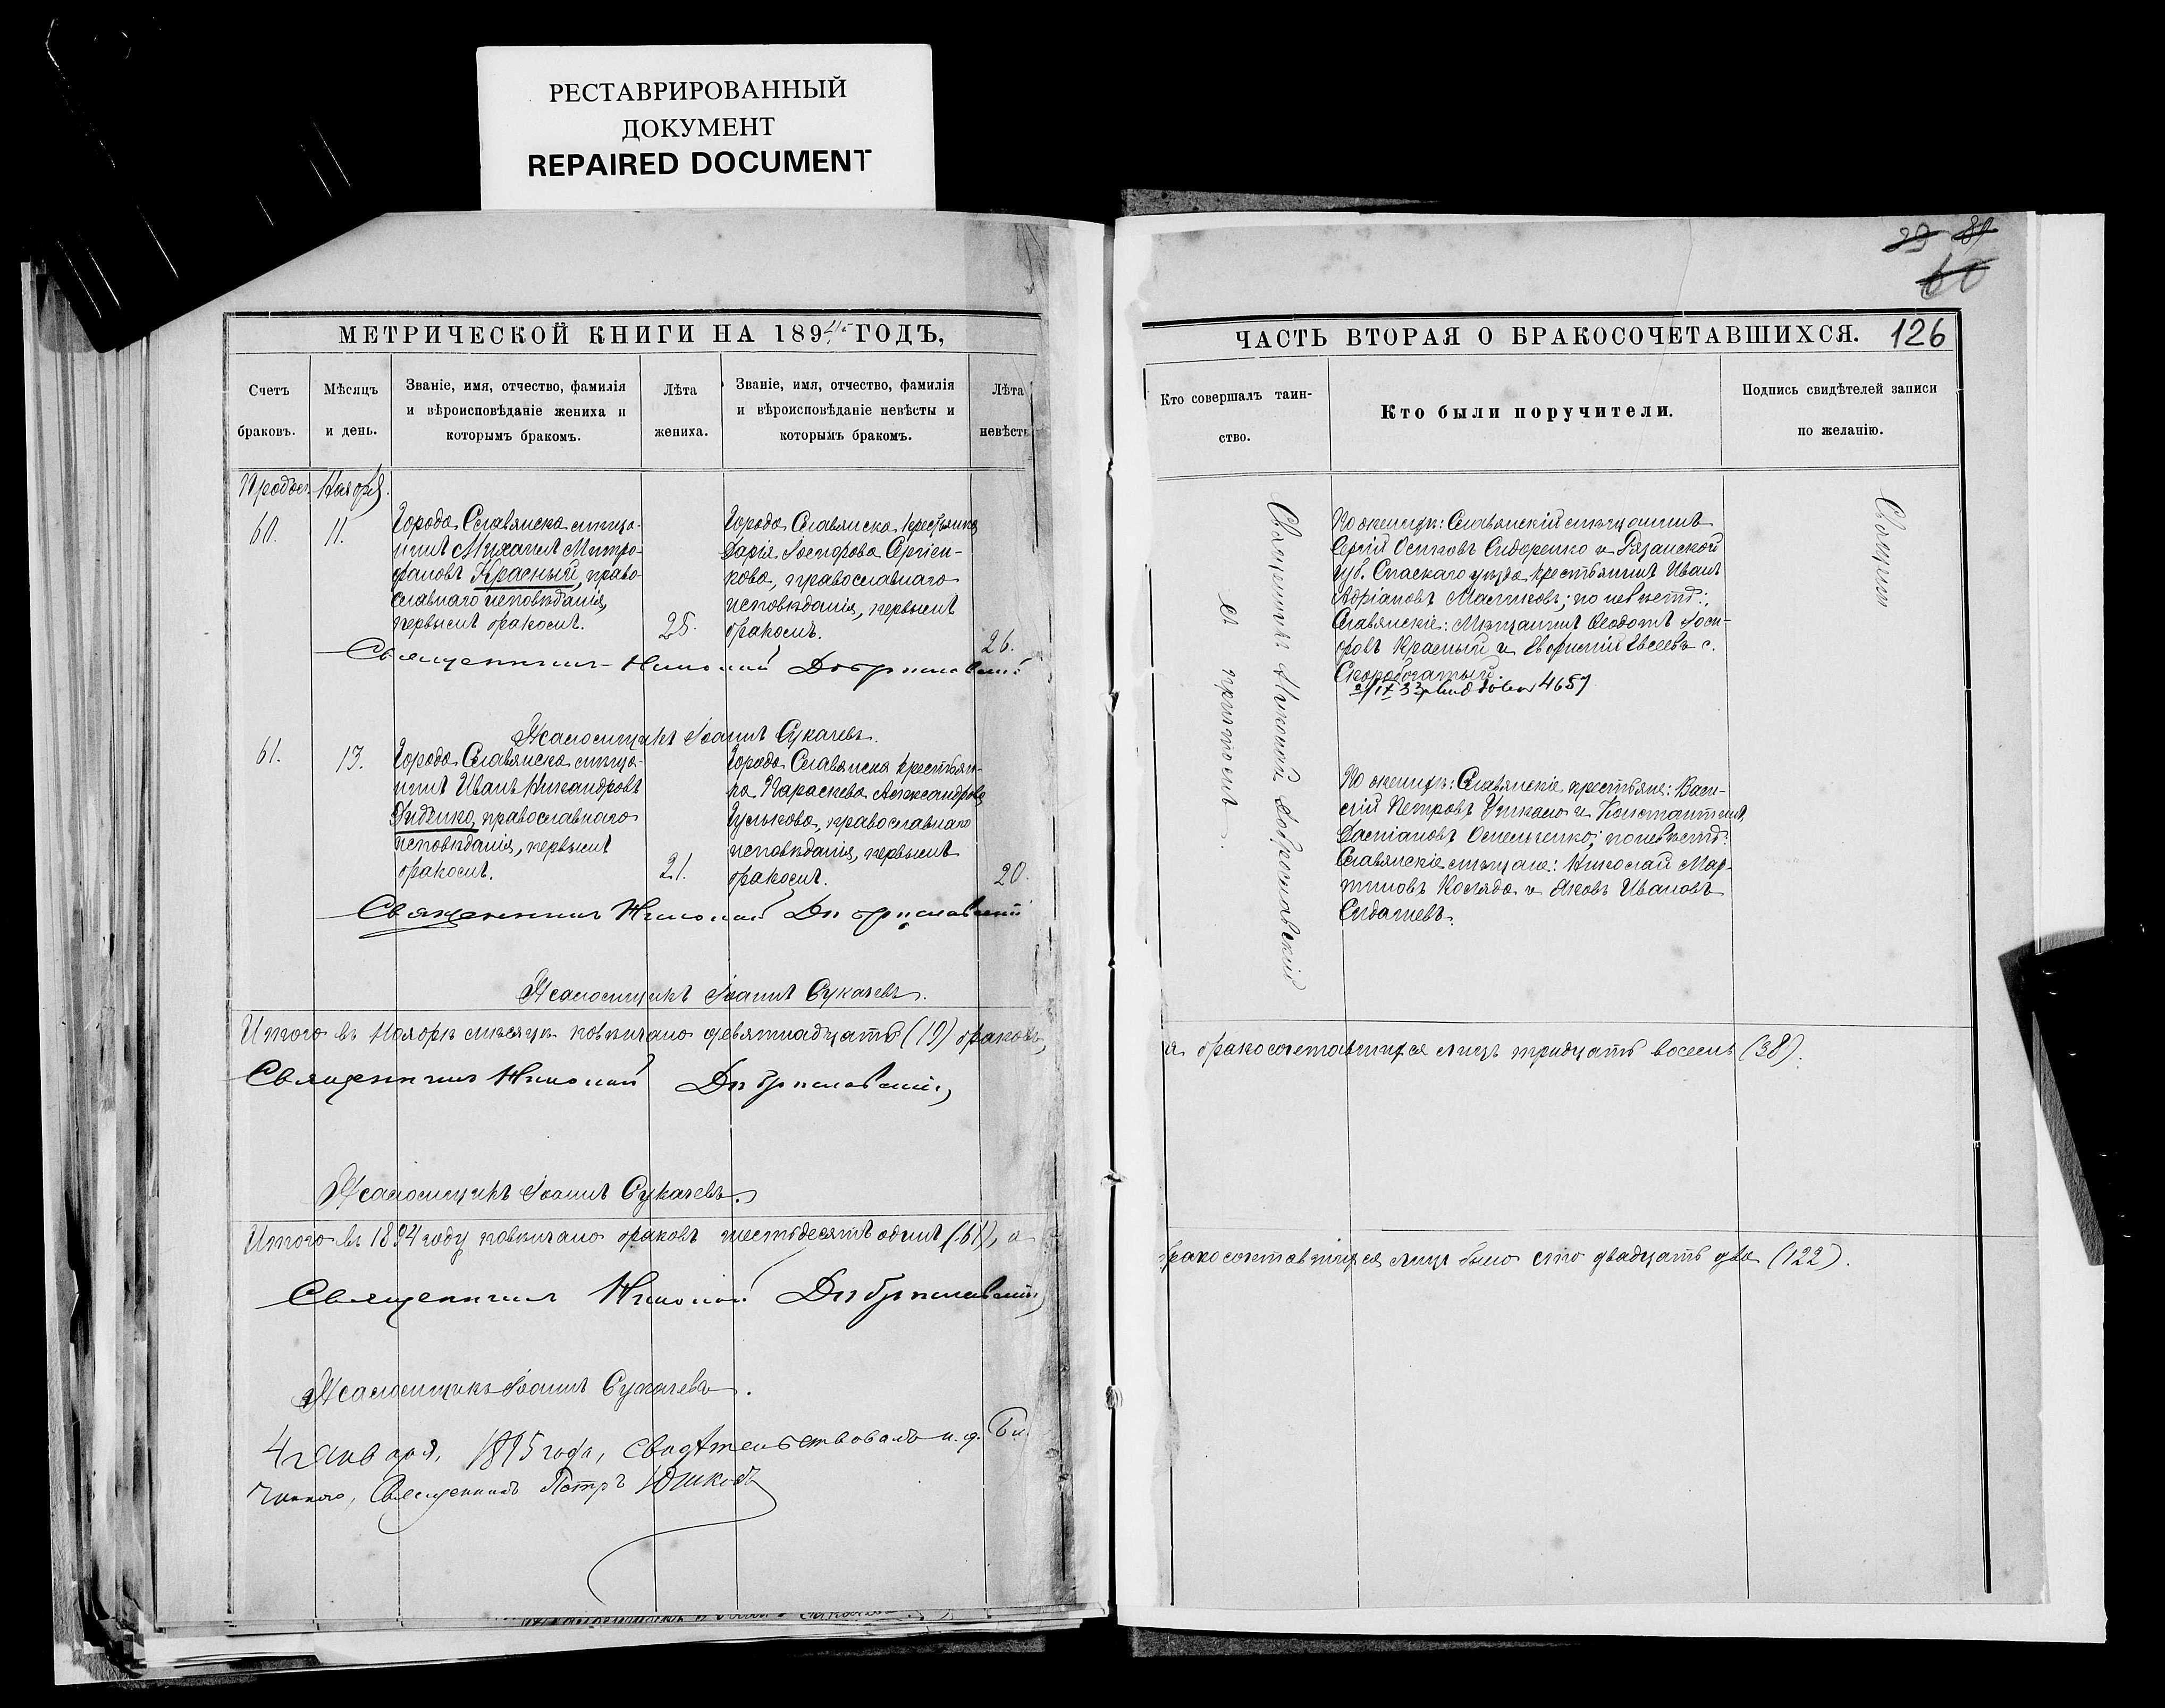 РЕСТАВРИРОВАННЫЙ
ДОКУМЕНТ
REPAIRED DOCUMENT
МЕТРИЧЕСКОЙ КНИГИ НА 1894 ГОДЪ,
Счетъ
браковъ.
Мѣсяцъ
и день.
Званіе, имя, отчество, фамилія
и вѣроисповѣданіе жениха и
которымъ бракомъ.
Лѣта
жениха.
Званіе, имя, отчество, фамилія
и вѣроисповѣданіе невѣсты и
которымъ бракомъ.
Лѣта
невѣсты
Ноября.
60.
11.
Города Славянска мѣща-
нинъ Михаилъ Митро-
фановъ Красный, право-
славнаго исповѣданія,
первымъ бракомъ.
25.
Города Славянска крестьянка
Дарія Сергіен-
кова, православнаго
исповѣданія, первымъ
бракомъ.
26.
Священникъ Николай Добриславскій
Псаломщикъ Іоаннъ Сукачевъ.
61.
13.
Города Славянска мѣща-
нинъ Иванъ Никандровъ
Диденко, православнаго
исповѣданія, первымъ
бракомъ.
21.
Города Славянска крестьян-
ка Параскева Александрова
Гунькова, православнаго
исповѣданія, первымъ
бракомъ.
20.
Священникъ Николай Добриславскій
Псаломщикъ Іоаннъ Сукачевъ.
Итого въ Ноябрѣ мѣсяцѣ повѣнчано девятнадцать (19) браковъ,
Священникъ Николай Добриславскій
Псаломщикъ Іоаннъ Сукачевъ.
Итого въ 1894 году повѣнчано браковъ шестьдесятъ одинъ (61), а
Священникъ Николай Добриславскій
Псаломщикъ Іоаннъ Сукачевъ.
4 января, 1895 года, свидѣтельствовалъ и. д. Бла-
гочиннаго, Священникъ Петръ Юшковъ
29 89
60
ЧАСТЬ ВТОРАЯ О БРАКОСОЧЕТАВШИХСЯ. 126
Кто совершалъ таин-
ство.
Кто были поручители.
Подпись свидѣтелей записи
по желанію.
Священникъ Николай Добриславскій
съ причтомъ.
По женихѣ: Славянскій мѣщанинъ
Сергій Осиповъ Сидоренко и Рязанской
губ. Спаскаго уѣзда крестьянинъ Иванъ
Адріановъ Масликовъ; по невѣстѣ:
Славянскіе: Мѣщанинъ Ѳеодотъ
Красный и Евсеевъ с.
Скоробогатый.
4657
По женихѣ: Славянскіе крестьяне: Васи-
лій Петровъ и Константинъ
Омельченко; по невѣстѣ:
Славянскіе мѣщане: Николай Мар-
тиновъ Коляда и Яковъ Ивановъ
Сидашевъ.
Священ
а бракосочетавшихся лицъ тридцать восемь (38).
бракосочетавшихся лицъ было сто двадцать два (122).